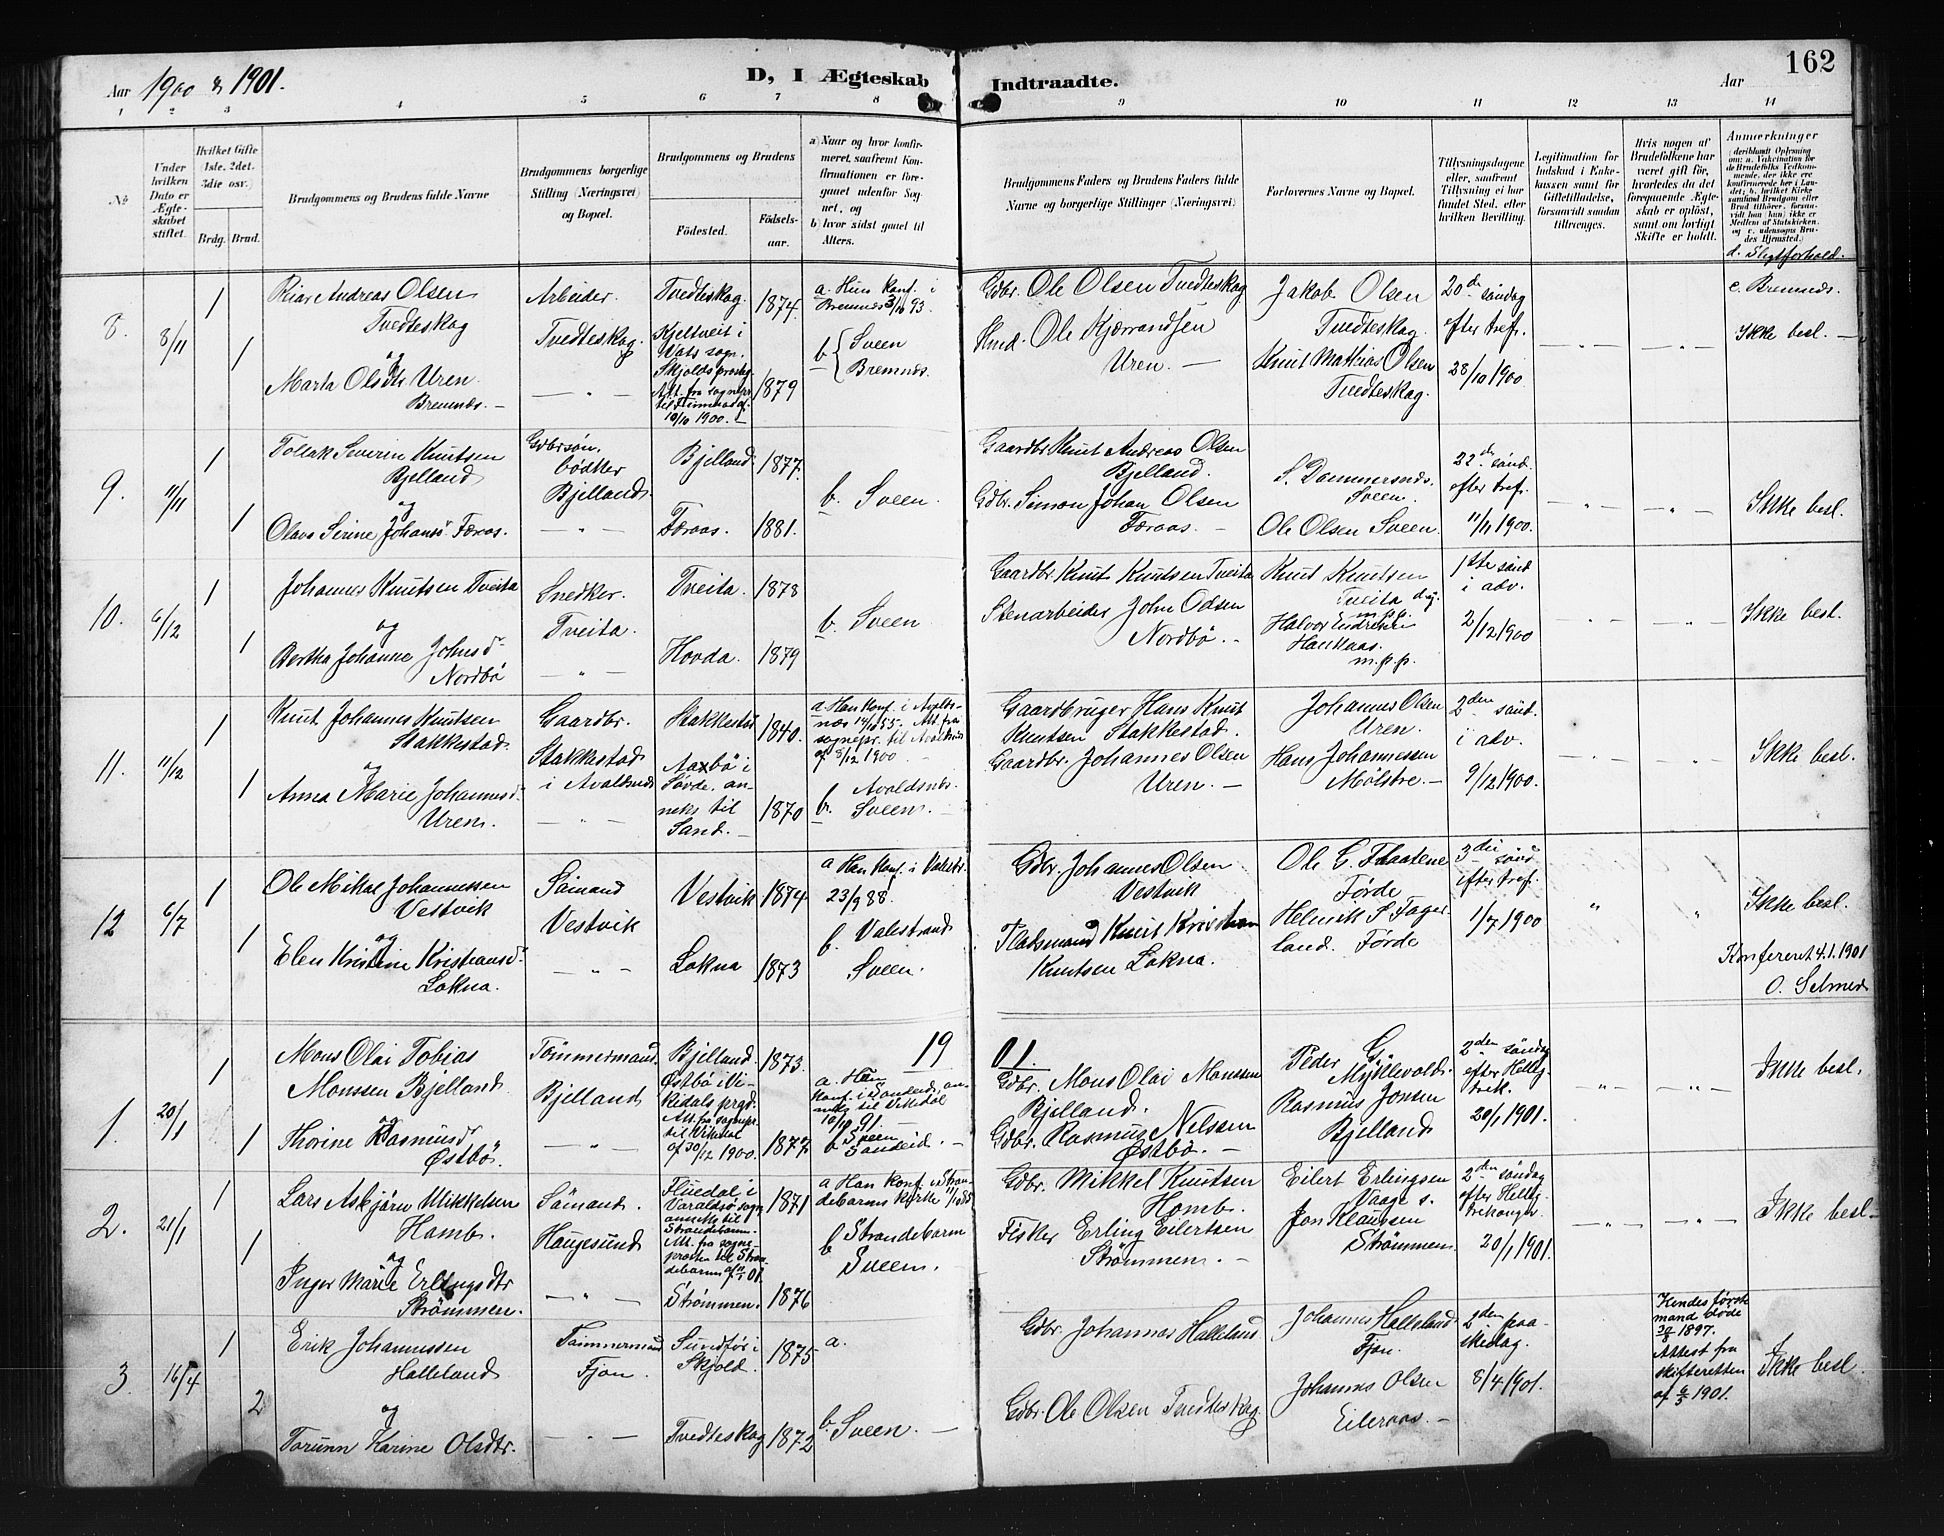 162
Aar 1900 & 1901.
D, I Ægteskab Indtraadte.
Aar
1 2 3 4 5 6 7 8 9 10 11 12 13 14
No
Under hvilken Dato er Ægteskabet stiftet.
Hvilket Gifte 1ste, 2det, 3die osv.
Brdg. Brud.
Brudgommens og Brudens fulde Navne
Brudgommens borgerlige Stilling (Næringsvei) og Bopæl.
Brudgommens og Brudens
Fødested.
Fødselsaar.
a) Naar og hvor konfirmeret, saafremt Konfirmationen er foregaaet udenfor Sognet, og
b) hvor sidst gaaet til Alters.
Brudgommens Faders og Brudens Faders fulde Navne og borgerlige Stillinger (Næringsvei)
Forlovernes Navne og Bopæl.
Tillysningsdagene eller, saafremt Tillysning ei har fundet Sted, efter hvilken Bevilling.
Legitimation for Indskud i Enkekassen samt for Giftetilladelse, forsaavidt saadan tiltrænges.
Hvis nogen af Brudefolkene har været gift før, hvorledes da det foregaaende Ægteskab er opløst, samt om lovligt Skifte er holdt.
Anmærkninger
d. Slegtforhold.
8. 8/11 1 1
Andreas Olsen
Tvedteskag
og
Marta Olsdtr Uren
Bremnes. —
Arbeider.
Tvedteskag.
— " —
Tvedteskag. 1874.
Kjeltveit i
Vats sogn.
Skjolds prestg.
Att. fra sognepr.
10/10 1900. —
1879
a. Hun konf. i
Bremnes 3/10 93.
b { Sveen
Bremnes.
Gdbr. Ole Olsen Tvedteskag
Ole Kjærrandsen
Uren. —
Jakob Olsen
Tvedteskag.
Knut Mathias Olsen
Tvedteskag.
20de søndag
efter tref.
28/10 1900.
— " — — " —
c. Bremnes.
Ikke besl. —
9. 11/11 1 1
Tollak Severin Knutsen
Bjelland
og
Olava Serine Johansd. Færaas.
Gdbrsøn,
bødker
Bjelland.
— " —
Bjelland 1877.
Færaas. 1881.
b. Sveen.
Gaardbr. Knut Andreas Olsen
Bjelland.
Gdbr. Simon Johan Olsen
Færaas. —
S. Dommersnes.
Sveen.
Ole Olsen Sveen.
22de sønd.
efter tref.
11/11 1900.
— " — — " —
Ikke besl.
10. 6/12 1 1
Johannes Knutsen Tveita
og
Bertha Johanne Johnsd.
Nordbø
Snedker.
Tveita.
— " —
Tveita. 1878
Hovda. 1879
b. Sveen
Gaardbr. Knut Knutsen Tveita
Stenarbeider John Odsen
Nordbø. —
Knut Knutsen
Tveita d.y.
m.p.p.
Halvor Endresen
Haukaas.
m.p.p.
1ste sønd
i adv.
2/12 1900
— " — — " —
Ikke besl.
11. 11/12 1 1
Knut Johannes Knutsen
Stakkestad.
og
Anna Marie Johannesd.
Uren.
Gaardbr.
Stakkestad
i Avaldsnes
— " —
Stakkestad 1840.
Aaxbø i
Søvde, an-
neks til
Sand. —
1870
a. Han konf. i Avalds-
nes 14/10 55. Att. fra
sognepr. til Avaldsnes
af 8/12 1900 —
b. Avaldsnes.
Sveen. —
Gaardbruger Hans Knut
Knutsen Stakkestad.
Gaardbr. Johannes Olsen
Uren. —
Johannes Olsen
Uren.
Hans Johannessen
Mølstre. —
2den sønd.
i adv.
9/12 1900.
— " — — " —
Ikke besl.
12 6/7 1 1
Ole Mikal Johannessen
Vestvik
og
Elen Kristine Kristiansd.
Lokna.
Sømand
Vestvik
— " —
Vestvik 1874.
Lokna 1873
a Han konf. i Valestr.
23/9 88.
b. Valestrand
Sveen.
Gdbr. Johannes Olsen
Vestvik
Pladsmand Knut Kristian
Knutsen Lokna.
Ole G. Flaatene
Førde
Helmik S Fager-
land. Førde
3die sønd
efter tref.
1/7 1900
" "
Ikke besl.
Konfereret 4.1.1901
O. Selmer
1901.
1. 20/1 1 1
Mons Olai Tobias
Monssen Bjelland
og
Thorine Rasmusd.
Østbø.
Tømmermand.
Bjelland
— " —
Bjelland. 1873.
Østbø i Vi-
kedals prgd.
Att. fra sognepr.
til Vikedal
af 30/12 1900. 1877.
a. Han
konf. i Sandeid, an-
neks til Vikedal
b Sveen
Sandeid. —
Gdbr. Mons Olai Monssen
Bjelland.
Gdbr. Rasmus Nelssen
Østbø. —
Peder G
Myklevold.
Rasmus Jonsen
Bjelland
2den søndag
efter Hellig-
trek.
20/1 1901.
— " — — " —
Ikke besl.
2. 21/1 1 1
Lars Askjørn Mikkelsen
Hamb.
og
Inger Marie Erlingsdtr
Strømmen.
Sømand.
Haugesund
— " —
Fluedal i
Varaldsø sogn
anneks til
Strandebarm.
Att. fra sogne-
presten til Stran-
debarm
Strømmen.
1871
1876
a Han konf. i Stran-
debarms kyrke
b Strandebarm
Sveen. —
Gdbr. Mikkel Knutsen
Hamb.
Fisker Erling Eilertsen
Strømmen. —
Eilert Erlingsen
Vaage s.
Jon Klaussen
Strømmen.
2den søndag
efter Hellig-
trekonger.
20/1 1901.
— " — — " —
Ikke besl.
3. 16/4 1 2
Erik Johannessen
Halleland
og
Torunn Karine Olsdtr.
Tømmermand
Fjon.
— " —
Sundfør i
Skjold.
1875
Tvedteskag 1872
a.
b. Sveen. —
Gdbr. Johannes Halleland
Gdbr. Ole Olsen Tvedteskag.
Johannes Halleland
Fjon.
Johannes Olsen
Eileraas. —
2den paa-
skedag.
8/4 1901.
Kvindes første
mand døde
1897.
Attest fra
skifteretten
af 6/3 1901.
Ikke besl.